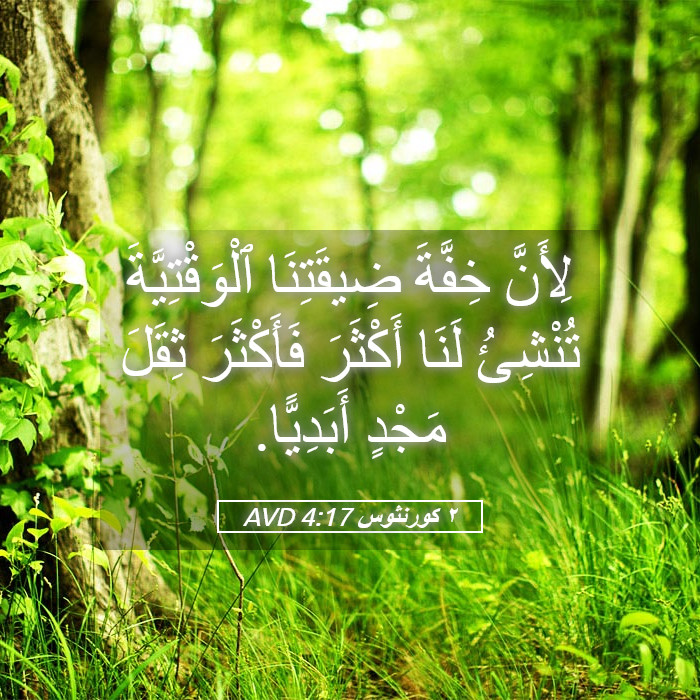 لِأَنَّ خِفَّةَ ضِيقَتِنَا ٱلْوَقْتِيَّةَ
تُنْشِئُ لَنَا أَكْثَرَ فَأَكْثَرَ ثِقَلَ
مَجْدٍ أَبَدِيًّا.
٢ كورنثوس 4:17 AVD